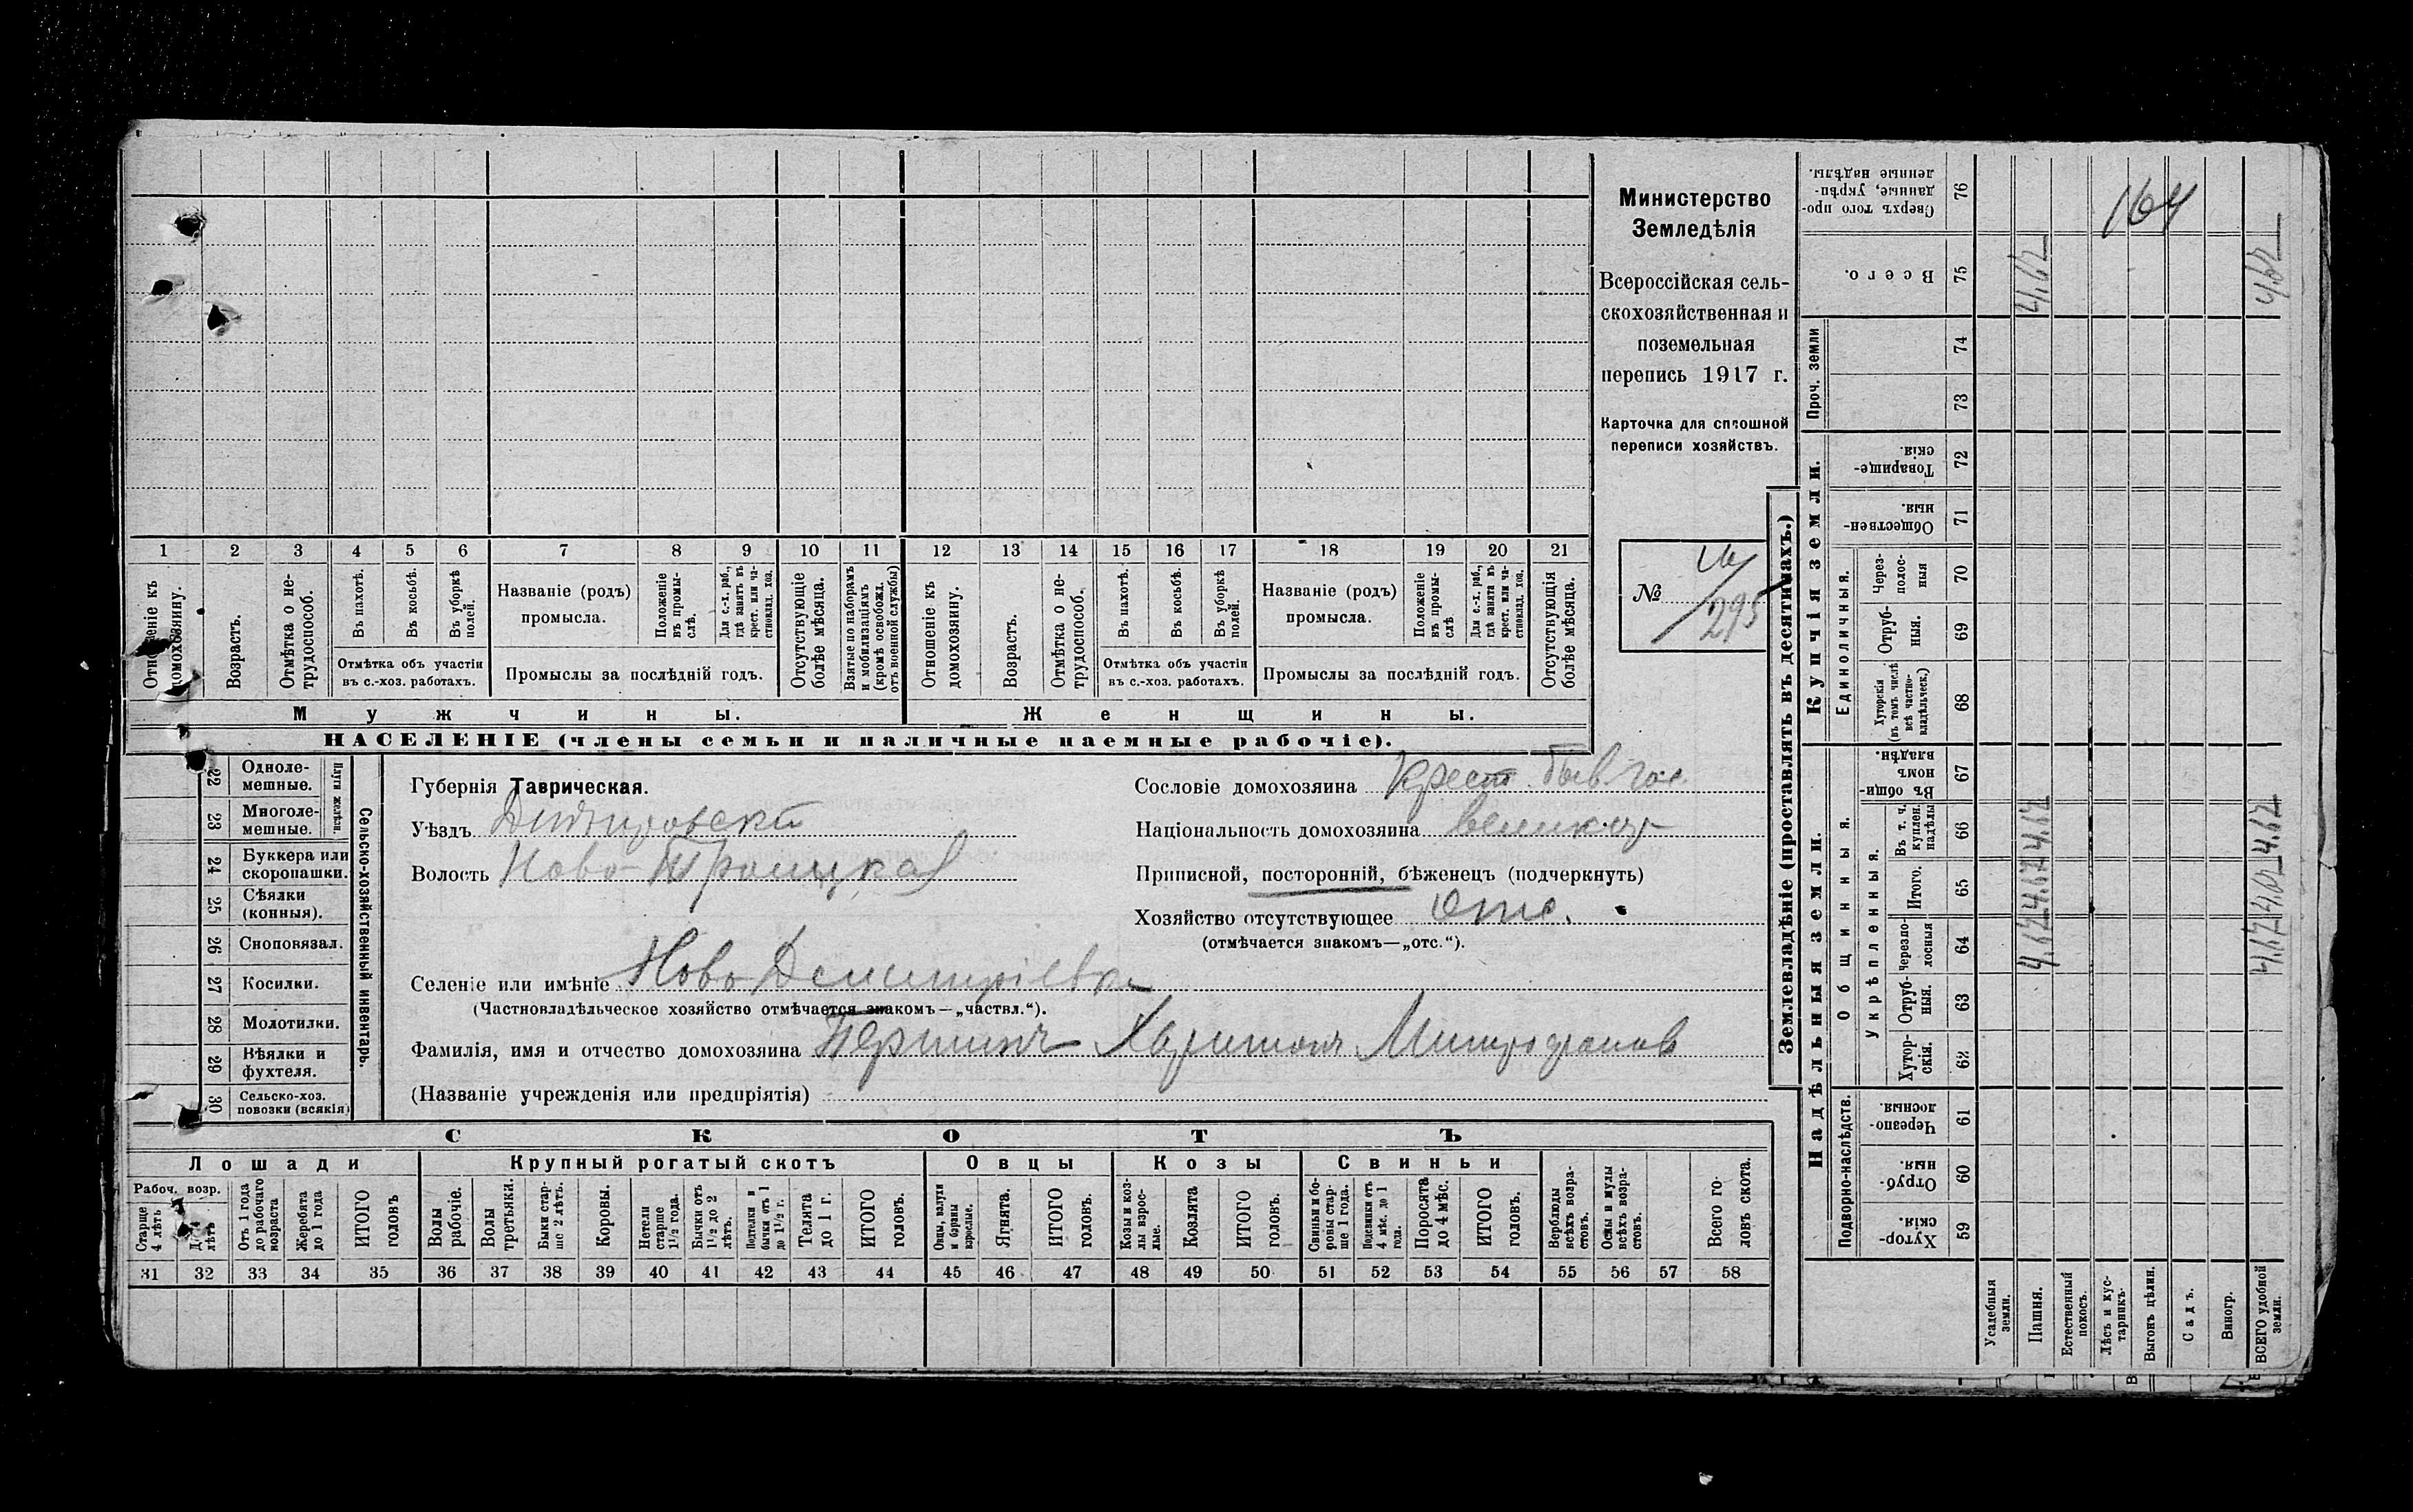 Министерство
Земледѣлія
Всероссійская сель-
скохозяйственная и
поземельная
перепись 1917 г.
Карточка для сплошной
переписи хозяйствъ.
№ 295
1 2 3 4 5 6 7 8 9 10 11 12 13 14 15 16 17 18 19 20 21
Отношеніе къ домохозяину.
Возрастъ.
Отмѣтка о не-трудоспособ.
Въ пахотѣ.
Въ косьбѣ.
Въ уборкѣ полей.
Отмѣтка объ участіи
въ с.-хоз. работахъ.
Названіе (родъ)
промысла.
Положеніе въ промы-слѣ.
Для с.-х. раб., гдѣ занятъ въ крест. или ча-стновлад. хоз.
Промыслы за послѣдній годъ.
Отсутствующіе болѣе мѣсяца.
Взятые по наборамъ и мобилизаціямъ (кромѣ освобожд. отъ военной службы)
Отношеніе къ домохозяину.
Возрастъ.
Отмѣтка о не-трудоспособ.
Въ пахотѣ.
Въ косьбѣ.
Въ уборкѣ полей.
Отмѣтка объ участіи
въ с.-хоз. работахъ.
Названіе (родъ)
промысла.
Положеніе въ промы-слѣ
Для с.-х. раб., гдѣ занята въ крест. или ча-стновлад. хоз.
Промыслы за послѣдній годъ.
Отсутствующія болѣе мѣсяца.
Мужчины.
Женщины.
НАСЕЛЕНІЕ (члены семьи и наличные наемные рабочіе).
22 Одноле-мешные.
23 Многоле-мешные.
Плуги желѣзн.
24 Буккера или скоропашки.
25 Сѣялки (конныя).
26 Сноповязал.
27 Косилки.
28 Молотилки.
29 Вѣялки и фухтеля.
30 Сельско-хоз. повозки (всякія)
Сельско-хозяйственный инвентарь.
Губернія Таврическая.
Уѣздъ Днѣпровскій
Волость Ново-Троицкая
Селеніе или имѣніе Ново Дмитріевка
(Частновладѣльческое хозяйство отмѣчается знакомъ—„частвл.“).
Фамилія, имя и отчество домохозяина Першинъ Харитонъ Митрофанов
(Названіе учрежденія или предпріятія)
Сословіе домохозяина Крест. быв. гос.
Національность домохозяина великор
Приписной, посторонній, бѣженецъ (подчеркнуть)
Хозяйство отсутствующее отс.
(отмѣчается знакомъ—„отс.“).
СКОТЪ
Лошади
Крупный рогатый скотъ
Овцы
Козы
Свиньи
Рабоч. возр.
Старше 4 лѣтъ
До лѣтъ
Отъ 1 года до рабочаго возраста
Жеребята до 1 года
ИТОГО головъ
Волы рабочіе.
Волы третьяки.
Быки стар-ше 2 лѣтъ.
Коровы.
Нетели старше 1½ года.
Бычки отъ 1½ до 2 лѣтъ.
Подтелки и бычки отъ 1 до 1½ г.
Телята до 1 г.
ИТОГО головъ.
Овцы, валухи и бараны взрослые.
Ягнята.
ИТОГО головъ.
Козы и коз-лы взрос-лые.
Козлята
ИТОГО головъ.
Свиньи и бо-ровы стар-ше 1 года.
Подсвинки отъ 4 мѣс. до 1 года.
Поросята до 4 мѣс.
ИТОГО головъ.
Верблюды всѣхъ возра-стовъ.
Ослы и мулы всѣхъ возра-стовъ.
Всего го-ловъ скота.
31 32 33 34 35 36 37 38 39 40 41 42 43 44 45 46 47 48 49 50 51 52 53 54 55 56 57 58
Землевладѣніе (проставлять въ десятинахъ.)
Надѣльныя земли.
Купчія земли.
Проч. земли
Подворно-наслѣдств.
Общинныя.
Укрѣпленныя.
Единоличныя.
Сверхъ того про-данные, укрѣп-ленные надѣлы. 76
Всего. 75
74
73
Товарище-скія. 72
Обществен-ныя. 71
Через-полос-ныя 70
Отруб-ныя. 69
Хуторскія (въ томъ числѣ всѣ частно-владѣльческ.) 68
Въ общин-номъ владѣн. 67
Въ т. ч. куплен. надѣлы 66
Итого. 65
Черезпо-лосныя 64
Отруб-ныя. 63
Хутор-скія. 62
Черезпо-лосныя. 61
Отруб-ныя. 60
Хутор-скія. 59
Усадебныя земли.
Пашня. 4,62 4,62 4,62 4,62
Естественный покосъ.
Лѣсъ и кус-тарникъ.
Выгонъ цѣлин.
Садъ.
Виногр.
ВСЕГО удобной земли. 4,62 4,62 4,62 4,62
164